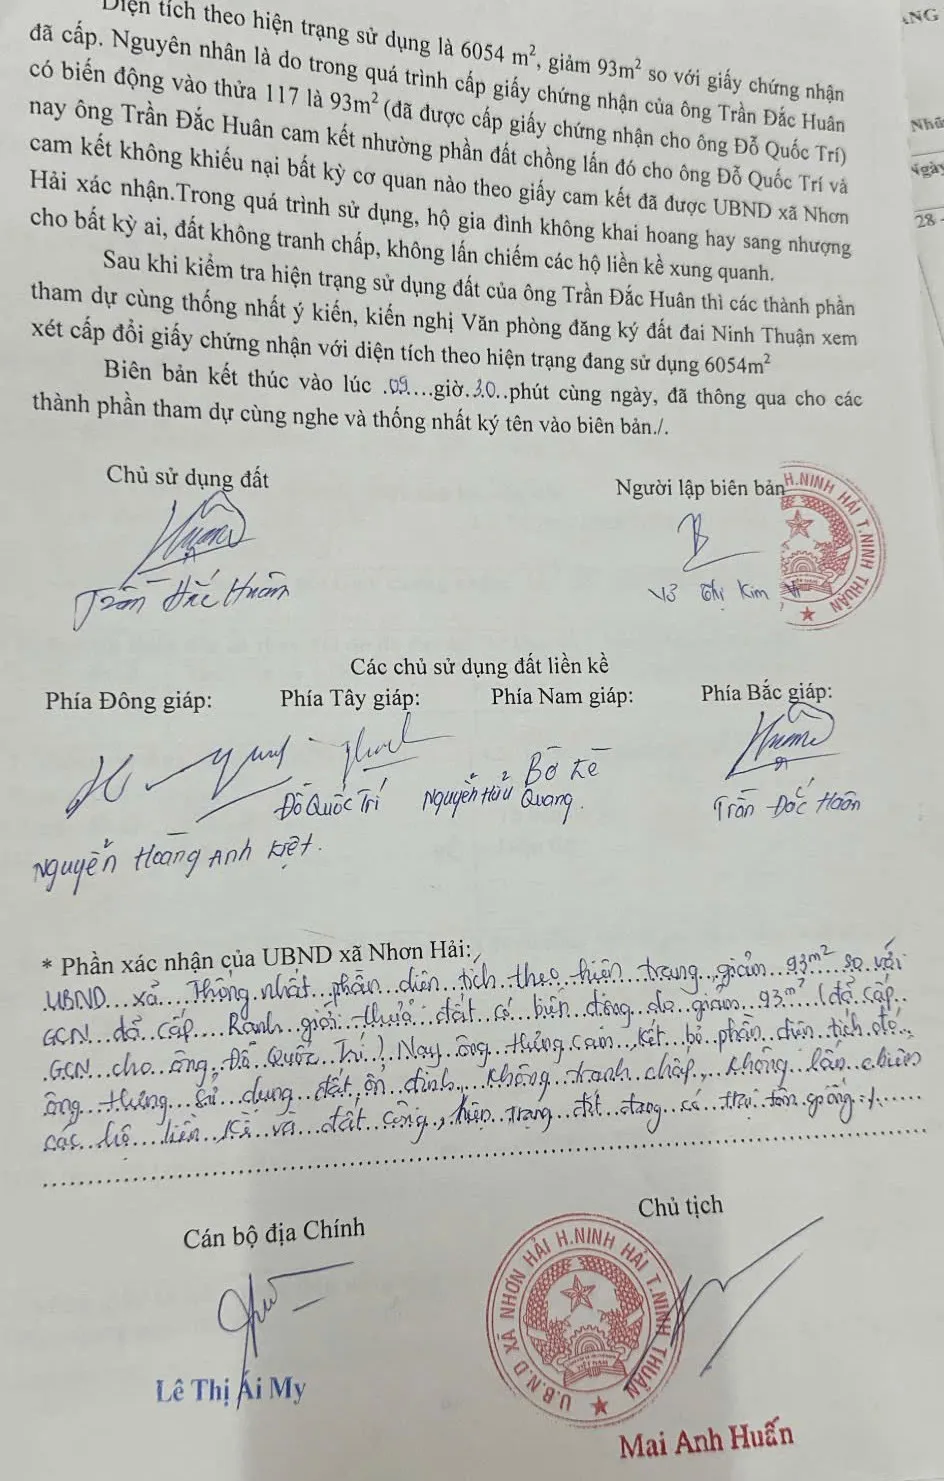 Diện tích theo hiện trạng sử dụng là 6054 m², giảm 93m² so với giấy chứng nhận
đã cấp. Nguyên nhân là do trong quá trình cấp giấy chứng nhận của ông Trần Đắc Huân
có biến động vào thửa 117 là 93m² (đã được cấp giấy chứng nhận cho ông Đỗ Quốc Trí)
nay ông Trần Đắc Huân cam kết nhường phần đất chồng lấn đó cho ông Đỗ Quốc Trí và
cam kết không khiếu nại bất kỳ cơ quan nào theo giấy cam kết đã được UBND xã Nhơn
Hải xác nhận.Trong quá trình sử dụng, hộ gia đình không khai hoang hay sang nhượng
cho bất kỳ ai, đất không tranh chấp, không lấn chiếm các hộ liền kề xung quanh.
Sau khi kiểm tra hiện trạng sử dụng đất của ông Trần Đắc Huân thì các thành phần
tham dự cùng thống nhất ý kiến, kiến nghị Văn phòng đăng ký đất đai Ninh Thuận xem
xét cấp đổi giấy chứng nhận với diện tích theo hiện trạng đang sử dụng 6054m²
Biên bản kết thúc vào lúc .09....giờ.30..phút cùng ngày, đã thông qua cho các
thành phần tham dự cùng nghe và thống nhất ký tên vào biên bản./.
Chủ sử dụng đất
Người lập biên bản
H.NINH HẢI T.NINH THUẬN
Huân
Trần Đắc Huân
Võ Thị Kim
Các chủ sử dụng đất liền kề
Phía Đông giáp: Phía Tây giáp: Phía Nam giáp: Phía Bắc giáp:
Bờ kè
Đỗ Quốc Trí Nguyễn Hữu Quang. Trần Đắc Huân
Nguyễn Hoàng Anh Kiệt.
* Phần xác nhận của UBND xã Nhơn Hải:
UBND xã Thống nhất phần diện tích theo hiện trạng giảm 93m² so với
GCN đã cấp. Ranh giới thửa đất có biến động do giảm 93m² (đã cấp
GCN cho ông Đỗ Quốc Trí). Nay ông thống cam kết bỏ phần diện tích đó,
ông sử dụng đất ổn định, không tranh chấp, không lấn chiếm
các hộ liền kề và đất công, hiện trạng đất đang có trại tôn giống./.
Cán bộ địa Chính
Chủ tịch
U.B.N.D XÃ NHƠN HẢI H.NINH HẢI T.NINH THUẬN
VIỆT NAM
Lê Thị Ái My
Mai Anh Huấn
ANG
Nhữ
Ngày
28 -